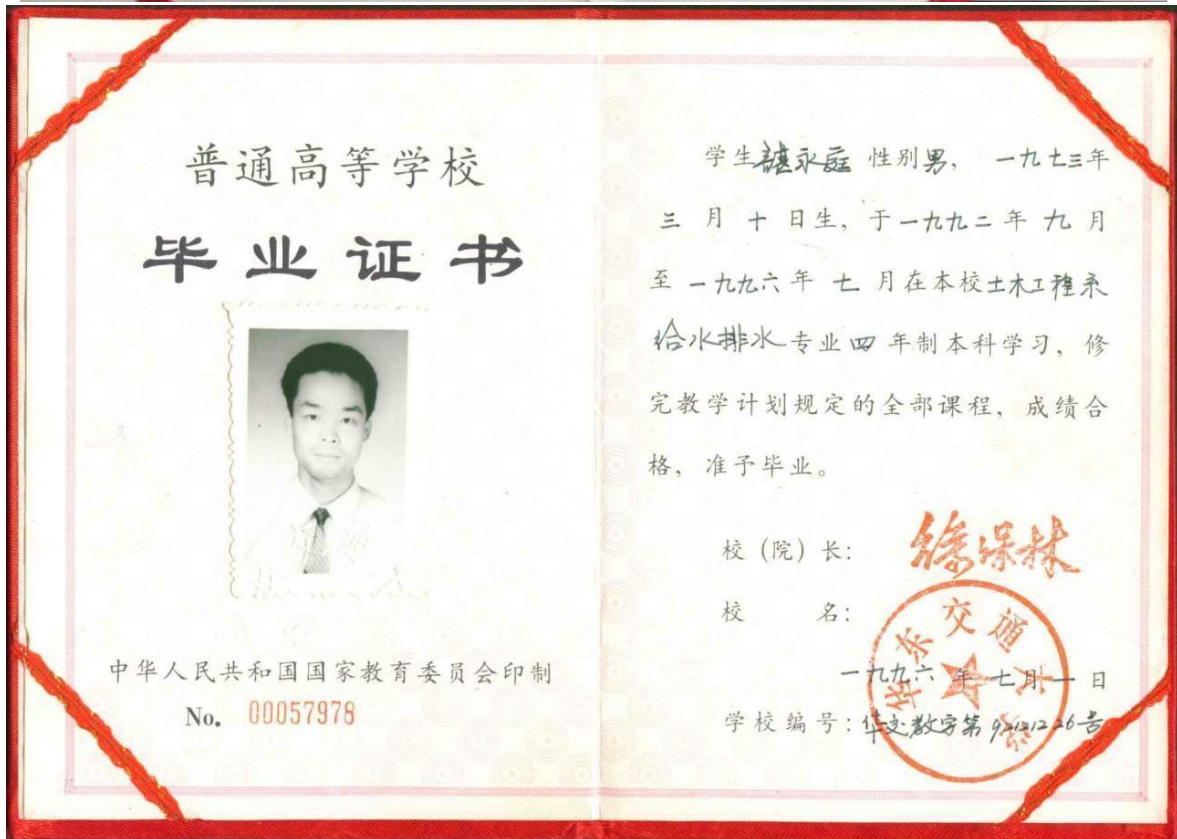 普通高等学校
毕业证书
中华人民共和国国家教育委员会印制
No. 00057978
学生谌永庭 性别男， 一九七三年
三月十日生，于一九九二年九月
至一九九六年七月在本校土木工程系
给水排水专业四年制本科学习，修
完教学计划规定的全部课程，成绩合
格，准予毕业。
校（院）长：徐保林
校 名：
华东交通大学
一九九六年七月一日
学校编号：华交教字第 号